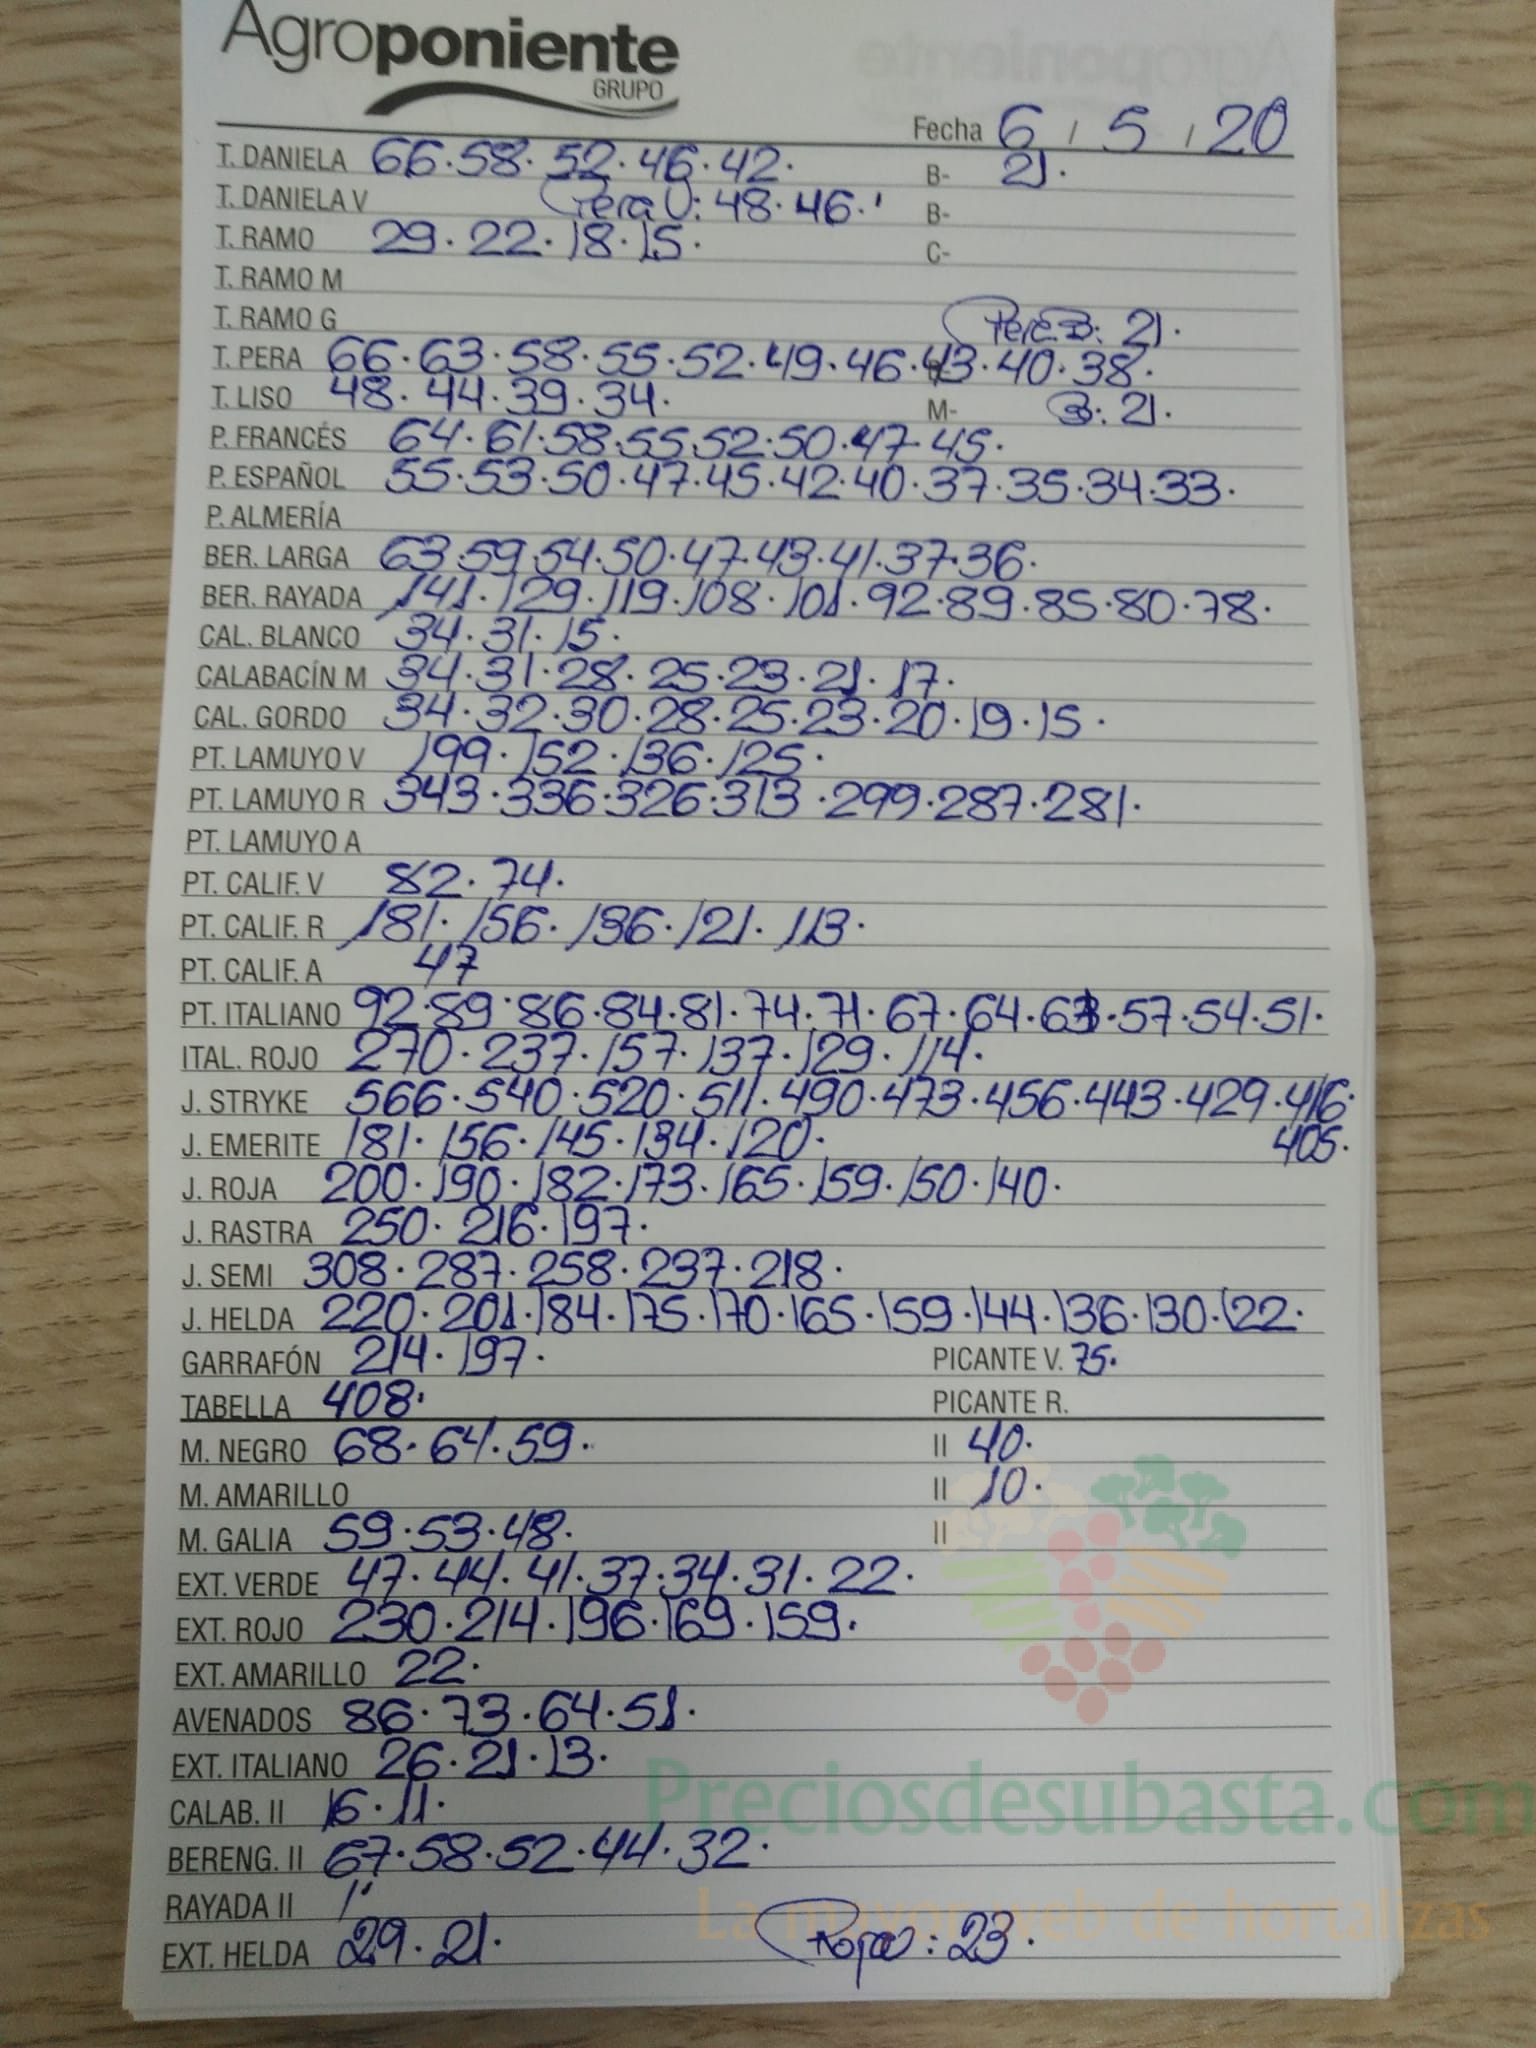 Agroponiente
GRUPO
Fecha 6 / 5 / 20
T. DANIELA 66.58.52.46.42. B- 21.
T. DANIELA V Pera V: 48.46. B-
T. RAMO 29.22.18.15. C-
T. RAMO M
T. RAMO G Pera B: 21.
T. PERA 66.63.58.55.52.49.46.43.40.38.
T. LISO 48.44.39.34. M- B: 21.
P. FRANCÉS 64.61.58.55.52.50.47.45.
P. ESPAÑOL 55.53.50.47.45.42.40.37.35.34.33.
P. ALMERÍA
BER. LARGA 63.59.54.50.47.43.41.37.36.
BER. RAYADA 141.129.119.108.101.92.89.85.80.78.
CAL. BLANCO 34.31.15.
CALABACÍN M 34.31.28.25.23.21.17.
CAL. GORDO 34.32.30.28.25.23.20.19.15.
PT. LAMUYO V 199.152.136.125.
PT. LAMUYO R 343.336.326.313.299.287.281.
PT. LAMUYO A
PT. CALIF. V 82.74.
PT. CALIF. R 181.156.136.121.113.
PT. CALIF. A 47
PT. ITALIANO 92.89.86.84.81.74.71.67.64.63.57.54.51.
ITAL. ROJO 270.237.157.137.129.114.
J. STRYKE 566.540.520.511.490.473.456.443.429.416.
J. EMERITE 181.156.145.134.120. 405.
J. ROJA 200.190.182.173.165.159.150.140.
J. RASTRA 250.216.197.
J. SEMI 308.287.258.237.218.
J. HELDA 220.201.184.175.170.165.159.144.136.130.122.
GARRAFÓN 214.197. PICANTE V. 75.
TABELLA 408. PICANTE R.
M. NEGRO 68.64.59. II 40.
M. AMARILLO II 10.
M. GALIA 59.53.48. II
EXT. VERDE 47.44.41.37.34.31.22.
EXT. ROJO 230.214.196.169.159.
EXT. AMARILLO 22.
AVENADOS 86.73.64.51.
EXT. ITALIANO 26.21.13.
CALAB. II 16.11.
Preciosdesubasta.com
BERENG. II 67.58.52.44.32.
RAYADA II
La mayor web de hortalizas
EXT. HELDA 29.21. Roja: 23.